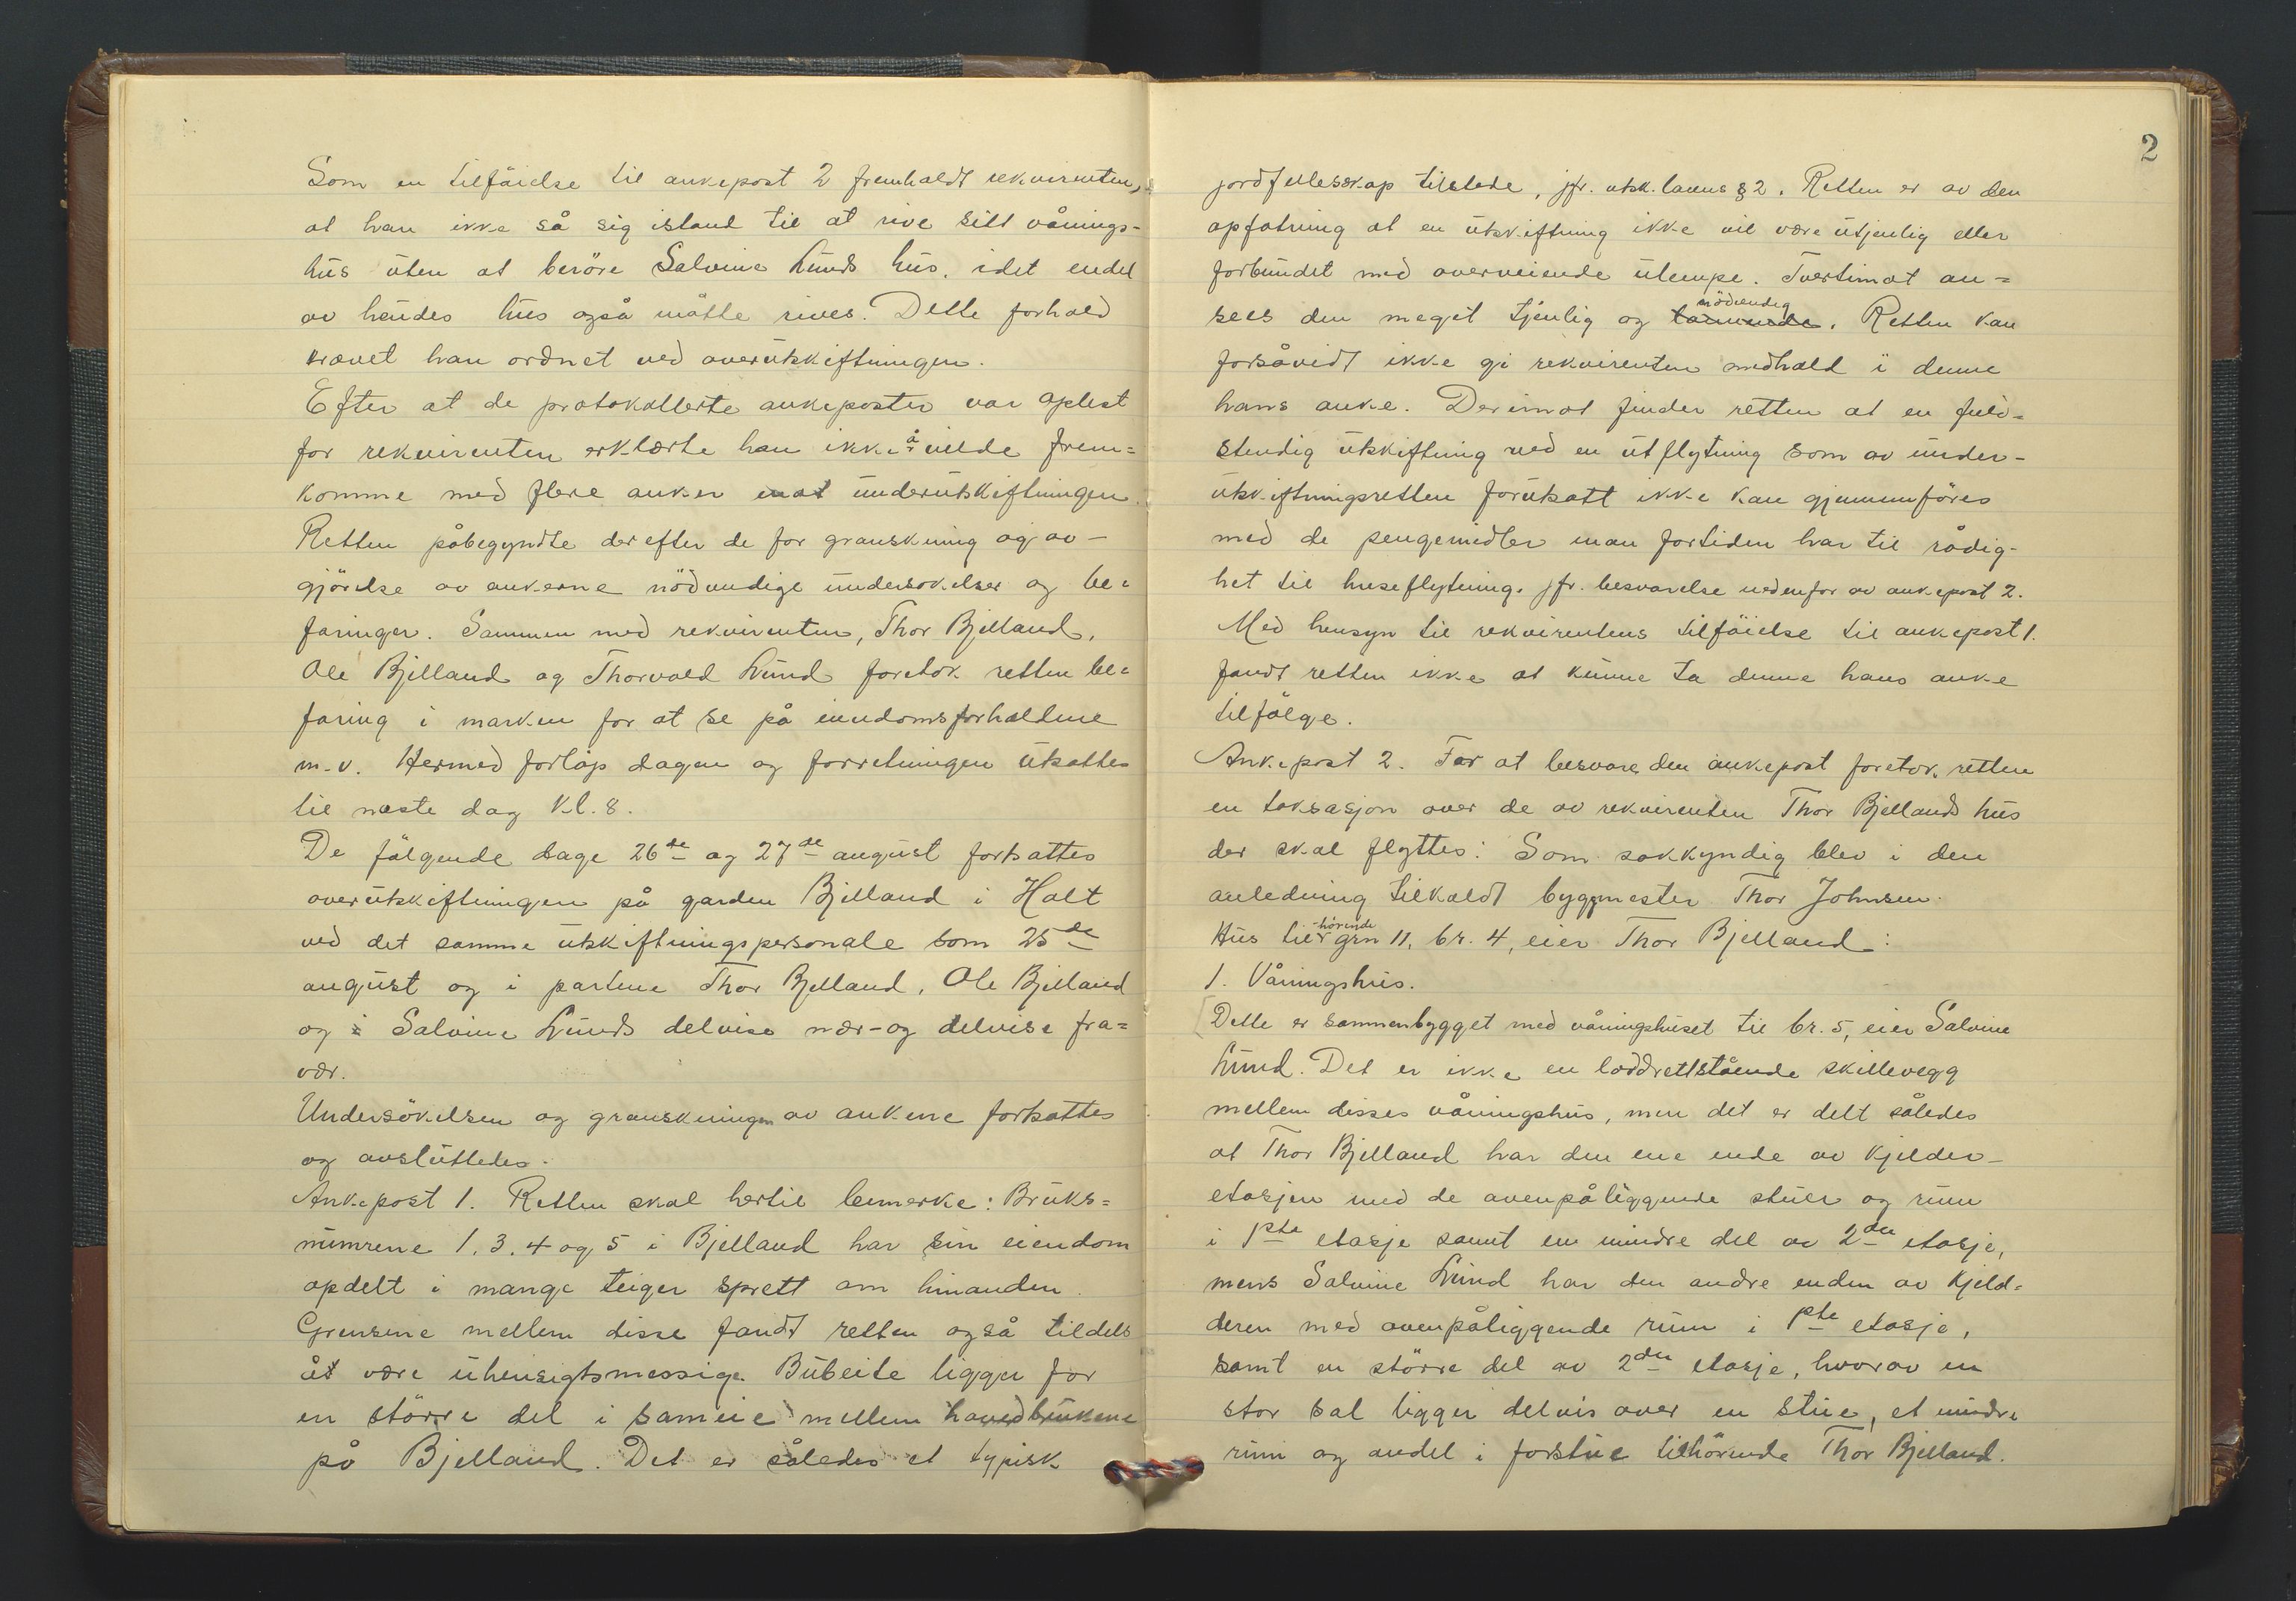 Som en tilföielse til ankepost 2 fremholdt rekvirenten,
at han ikke så sig istand til at rive sitt vånings-
hus uten at beröre Salvine Lunds hus, idet endel
av hendes hus også måtte rives. Dette forhold
krævet han ordnet ved overutskiftningen.
Efter at de protokollerte ankeposter var oplest
for rekvirenten erklærte han ikke å vilde frem=
komme med flere anker mot underutskiftningen.
Retten påbegyndte derefter de for granskning og av-
gjörelse av ankerne nödvendige undersökelser og be=
faringer. Sammen med rekvirenten, Thor Bjelland,
Ole Bjelland og Thorvald Lund foretok retten be=
faring i marken for at se på eiendomsforholdene
m.v. Hermed forløp dagen og forretningen utsattes
til næste dag kl. 8.
De følgende dage 26de og 27de august fortsattes
overutskiftningen på garden Bjelland i Holt
ved det samme utskiftningspersonale som 25de
august og i partene Thor Bjelland, Ole Bjelland
og i Salvine Lunds delvise nær- og delvise fra=
vær.
Undersökelsen og granskningen av ankene fortsattes
og avsluttedes.
Ankepost 1. Retten skal hertil bemerke: Bruks=
numrene 1, 3, 4 og 5 i Bjelland har sin eiendom
opdelt i mange teiger sprett om hinanden.
Grensene mellem disse fandt retten også tildels
åt være uhensigtsmessige. Bubeite ligger for
en större del i sameie mellem hovedbrukene
på Bjelland. Det er således et typisk
2
jordfellesskap tilstede, jfr. utsk.lovens § 2. Retten er av den
opfatning at en utskiftning ikke vil være utjenlig eller
forbundet med overveiende ulempe. Tvertimot an=
sees den meget tjenlig og nödvendig. Retten kan
forsåvidt ikke gi rekvirenten medhold i denne
hans anke. Derimot finder retten at en fuld=
stendig utskiftning med en utflytning som av under-
utskiftningsretten forutsatt ikke kan gjennemföres
med de pengemidler man fortiden har til rådig-
het til huseflytning. jfr. besvarelse nedenfor av ankepost 2.
Med hensyn til rekvirentens tilföielse til ankepost 1.
fandt retten ikke at kunne ta denne hans anke
tilfölge.
Ankepost 2. For at besvare den ankepost foretok retten
en taksasjon over de av rekvirenten Thor Bjellands hus
der skal flyttes: Som sakkyndig blev i den
anledning tilkaldt byggmester Thor Johnsen.
Hus tilhörende grn 11, br. 4, eier Thor Bjelland:
1. Våningshus.
[Dette er sammenbygget med våningshuset til br. 5, eier Salvine
Lund. Det er ikke en loddrettstående skillevegg
mellem disses våningshus, men det er delt således
at Thor Bjelland har den ene ende av kjelder-
etasjen med de ovenpåliggende stuer og rum
i 1ste etasje samt en mindre del av 2den etasje,
mens Salvine Lund har den andre enden av kjeld=
deren med ovenpåliggende rum i 1ste etasje,
samt en större del av 2den etasje, hvorav en
stor sal ligger delvis over en stue, et mindre
rum og andel i forstue tilhörende Thor Bjelland.